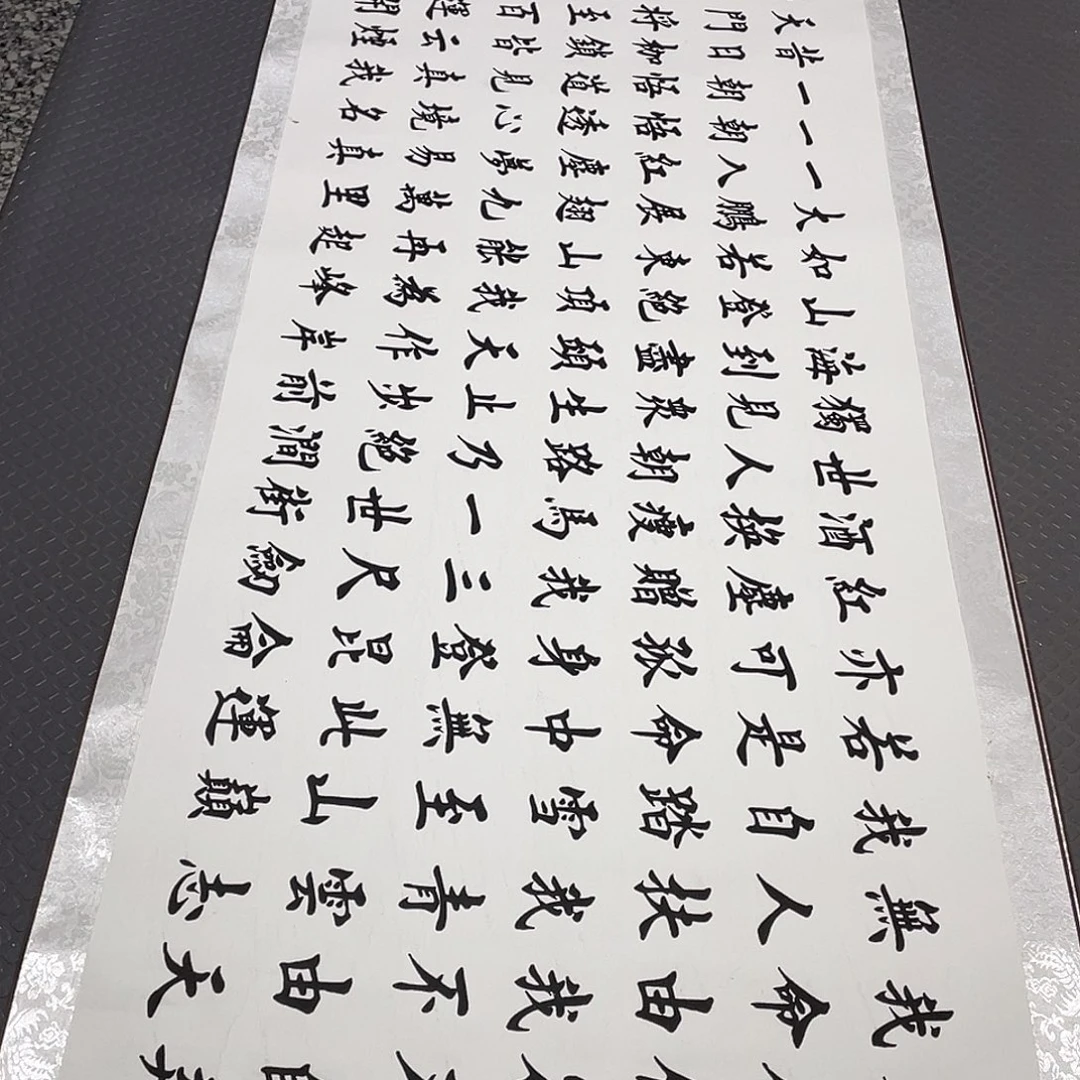 天門将至百運開
昔日枷鎖皆云煙
一朝悟道見真我
一朝悟透心境名
一入紅塵夢易真
大鵬展翅九萬里
如若東山能再起
山登絕頂我為峰
海到盡頭天作岸
獨見衆生止步前
世人朝路乃絕澗
酒換瘦馬一世街
紅塵贈我三尺劍
亦可孤身登昆侖
若是命中無此運
我自踏雪至山巔
無人扶我青雲志
我命由我不由天